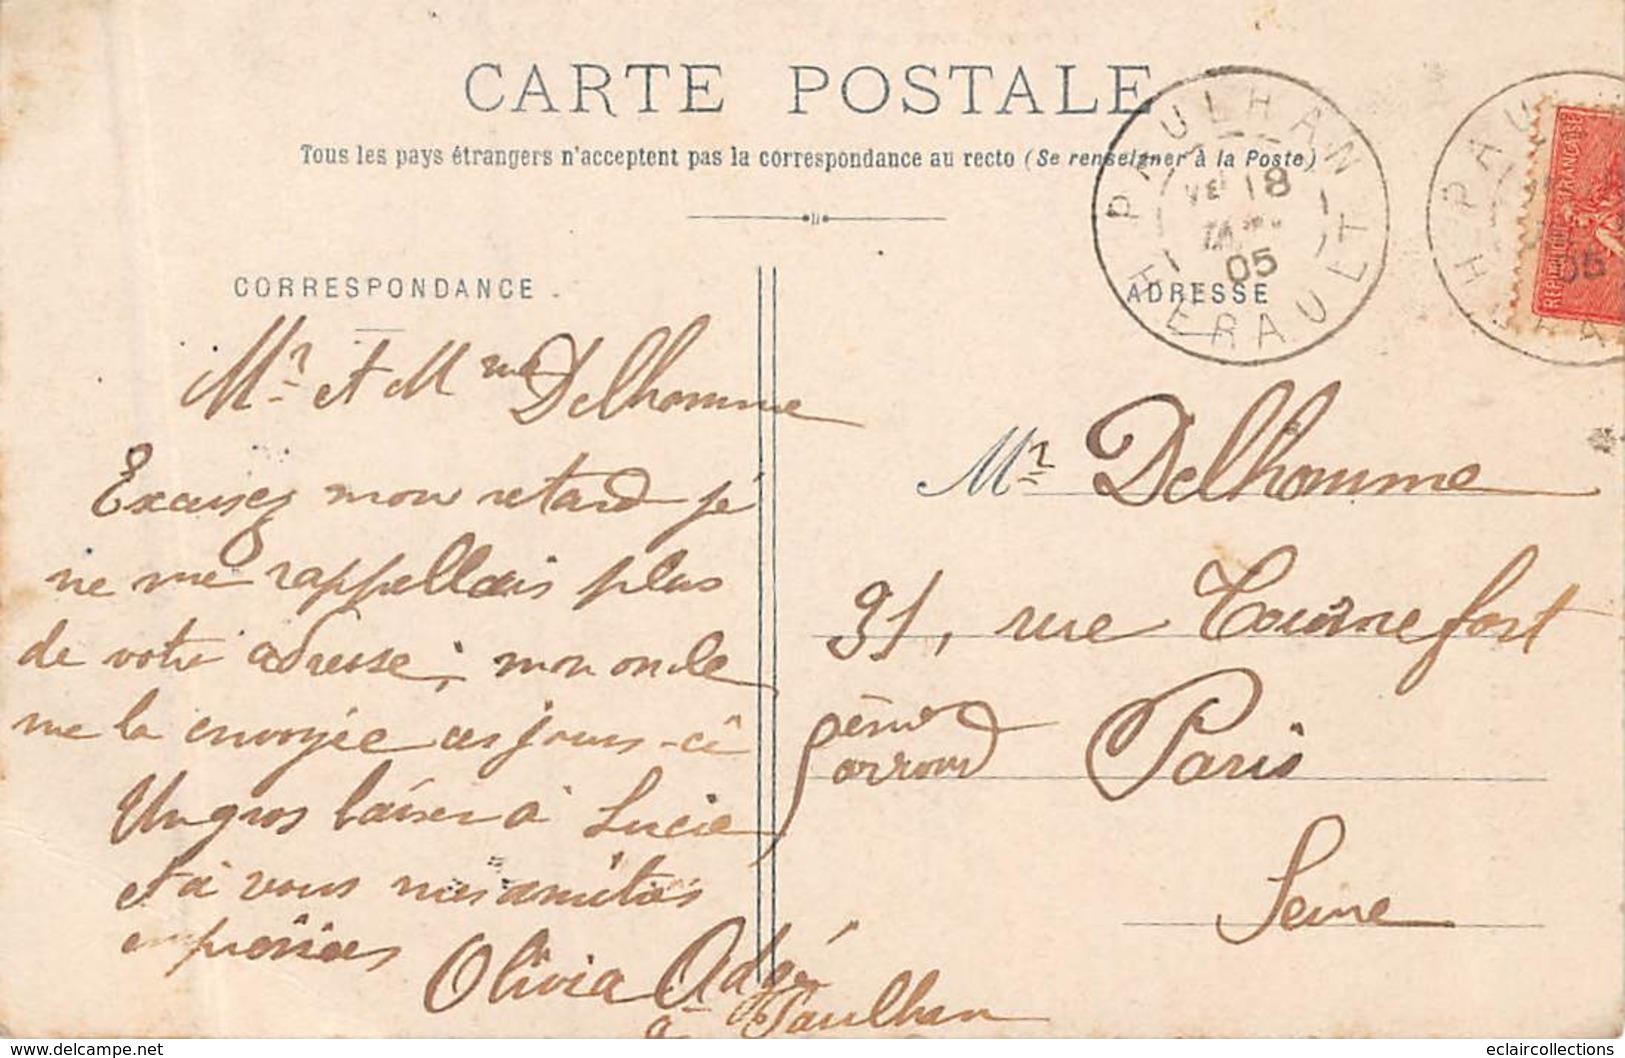 CARTE POSTALE
Tous les pays étrangers n'acceptent pas la correspondance au recto (Se renseigner à la Poste)
CORRESPONDANCE
ADRESSE
PAULHAN
18
05
HERAULT
REPUBLIQUE FRANCAISE
05
Mr et Mme Delhomme
Excusez mon retard je
ne me rappellais plus
de votre adresse, mon oncle
me la envoyée ces jours-ci
Un gros baiser à Lucie
et à vous mes amitiés
Olivia
à Paulhan
Mr Delhomme
31, rue Tournefort
5ème arrond Paris
Seine
delcampe.net
eclaircollections